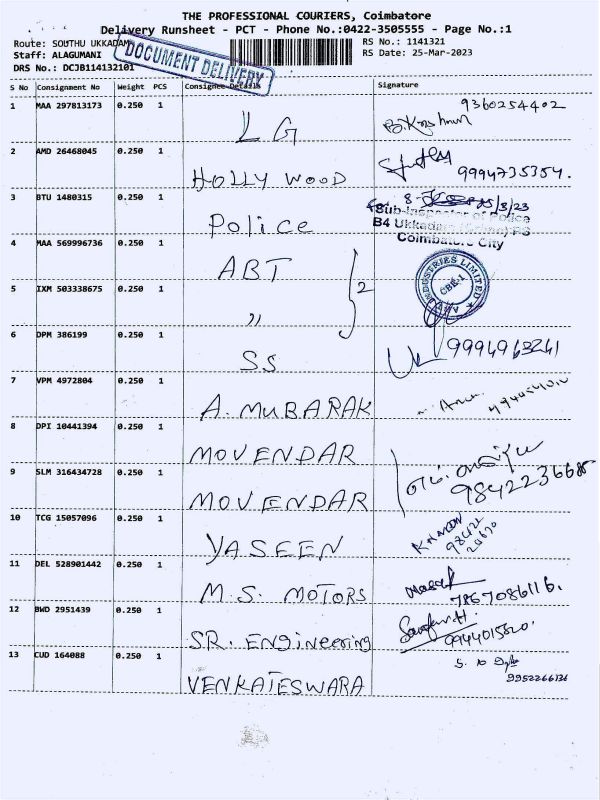 THE PROFESSIONAL COURIERS, Coimbatore
Delivery Runsheet - PCT - Phone No.:0422-3505555 - Page No.:1
Route: SOUTHU UKKADAM RS No.: 1141321
Staff: ALAGUMANI RS Date: 25-Mar-2023
DRS No.: DCJB114132101
DOCUMENT DELIVERY
S No Consignment No Weight PCS Consignee Details Signature
1 MAA 297813173 0.250 1 LG 9360254402
2 AMD 26468045 0.250 1 HOLLY WOOD 9994735354.
3 BTU 1480315 0.250 1 Police 25/3/23
Sub-Inspector of Police
B4 Ukkadam PS
Coimbatore City
4 MAA 569996736 0.250 1 ABT
INDUSTRIES LIMITED
CBE-1
5 IXM 503338675 0.250 1 " 2
6 DPM 386199 0.250 1 SS 9994963241
7 VPM 4972804 0.250 1 A. MUBARAK
8 DPI 10441394 0.250 1 MOVENDAR
9 SLM 316434728 0.250 1 MOVENDAR
10 TCG 15057096 0.250 1 YASEEN
11 DEL 528901442 0.250 1 M.S. MOTORS
12 BWD 2951439 0.250 1 SR. Engineering
13 CUD 164088 0.250 1 VENKATESWARA 9952266136